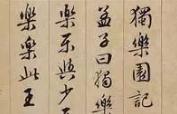 獨樂園記
孟子曰獨樂
樂不與少
樂樂此王